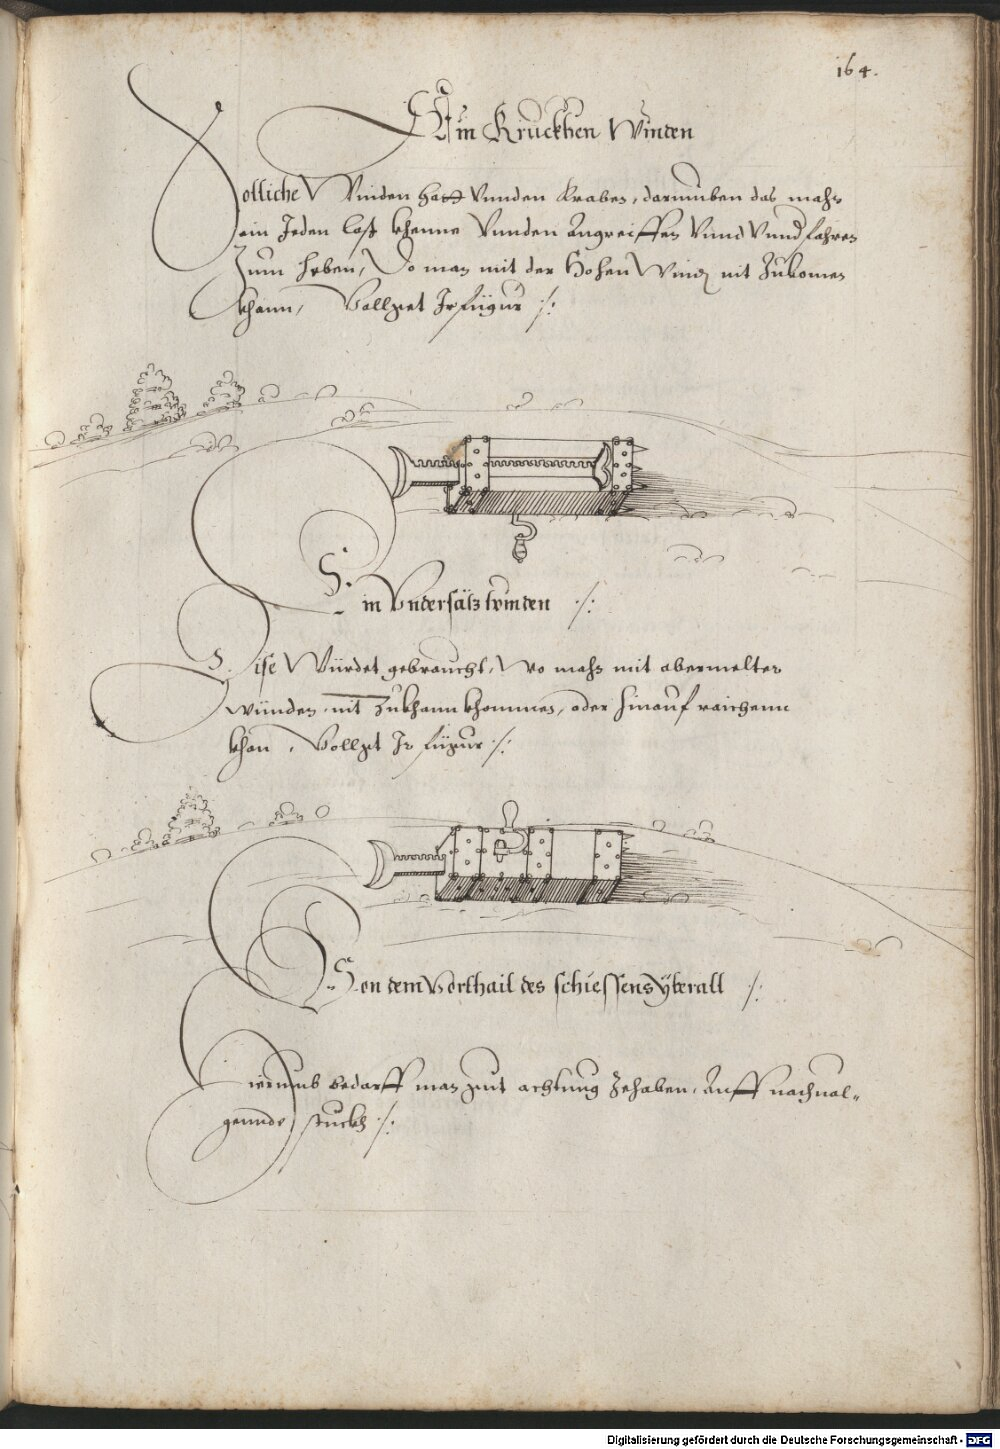 164.
Ain Kruckhen Winden
Solliche Winden hatt Vnnden Kraben, darumben das mahn
ein Jeden last khenne Vnnden Angreiffen Vnnd Vnndfahren
Zum heben, Wo man mit der Hohen Windn nit Zukomen
khann, Vollget Ir figur ./:
Ein Vndersätz winden ./:
Dise Würdet gebraucht, Wo mahn mit abermelter
winden, nit Zukhann khommen, oder hinauf raichenn
khan, Vollgt Ir figur ./:
Von dem Vorthail des schiessens yberall ./:
Hierumb bedarff man gut achtung Zehaben, Auff nachuol„
gennde stuckh ./:
Digitalisierung gefördert durch die Deutsche Forschungsgemeinschaft - DFG